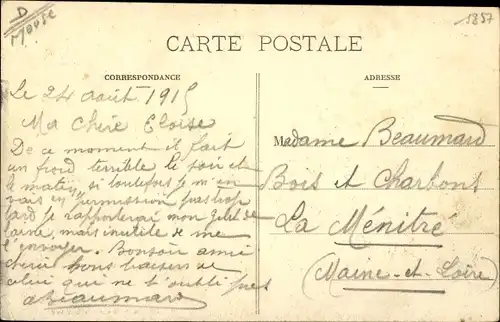 D
Meuse
5857
CARTE POSTALE
CORRESPONDANCE
ADRESSE
Le 24 août 1915
Ma Chère Eloïse
De ce moment il fait
un froid terrible le soir et
le matin, si toutefois je m'en
vais en permission pas trop
tard je rapporterai mon gilet de
laine, mais inutile de me
l'envoyer. Bonsoir amie
chérie bons baisers de
celui qui ne t'oublie pas
Beaumard
Madame Beaumard
Bois et Charbons
La Ménitré
(Maine-et-Loire)